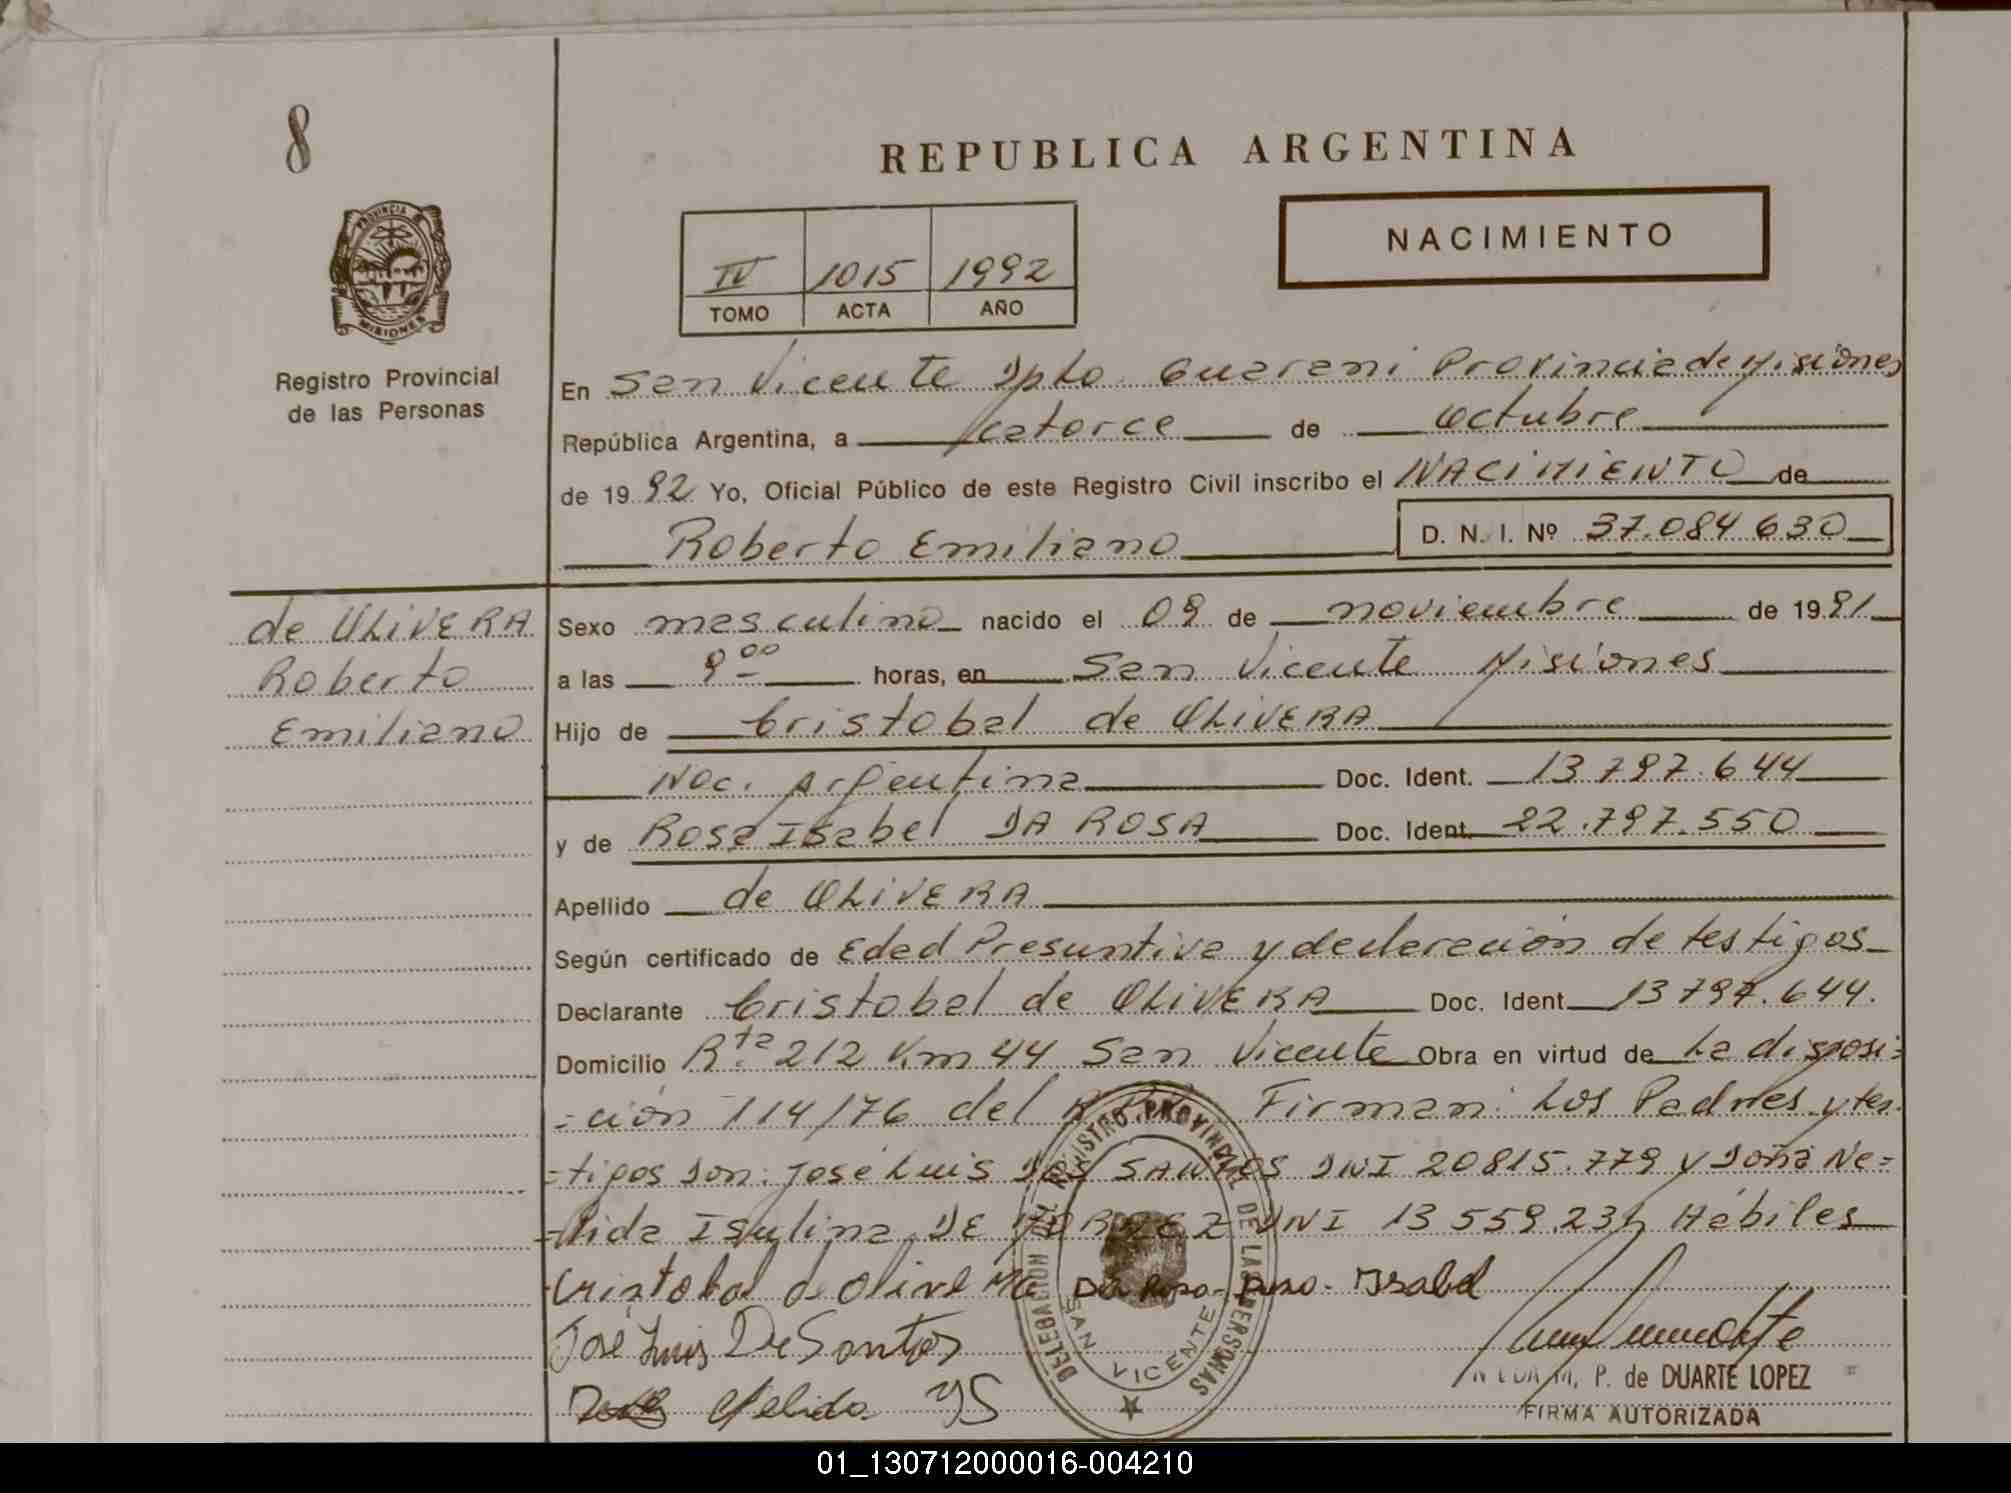 8
REPUBLICA ARGENTINA
NACIMIENTO
IV 1015 1992
TOMO ACTA AÑO
PROVINCIA DE MISIONES
Registro Provincial
de las Personas
En San Vicente Dpto. Guarani Provincia de Misiones
República Argentina, a catorce de Octubre
de 1992 Yo, Oficial Público de este Registro Civil inscribo el NACIMIENTO de
Roberto Emiliano D. N. I. Nº 37.084 630
de OLIVERA
Roberto
Emiliano
Sexo masculino nacido el 09 de noviembre de 1991
a las 9 00 horas, en San Vicente Misiones
Hijo de Cristobal de OLIVERA
Nac. Argentina Doc. Ident. 13 797.644
y de Rosa Isabel DA ROSA Doc. Ident. 22.797.550
Apellido de OLIVERA
Según certificado de Edad Presuntiva y declaración de testigos
Declarante Cristobal de OLIVERA Doc. Ident. 13 797.644.
Domicilio Rta 212 Km 44 San Vicente Obra en virtud de La disposi=
=ción 114/76 del Firman: Los Padres y tes
=tigos Don: José Luis DOS SANTOS DNI 20815.779 y Doña Ne=
=lida Isulina DE DNI 13 559 234 Hábiles
Cristobal de Olivera Da Rosa Rosa Isabel
José Luis Do Santos
Nelida YS
DELEGACION DEL REGISTRO PROVINCIAL DE LAS PERSONAS
SAN VICENTE
P. de DUARTE LOPEZ
FIRMA AUTORIZADA
01_130712000016-004210